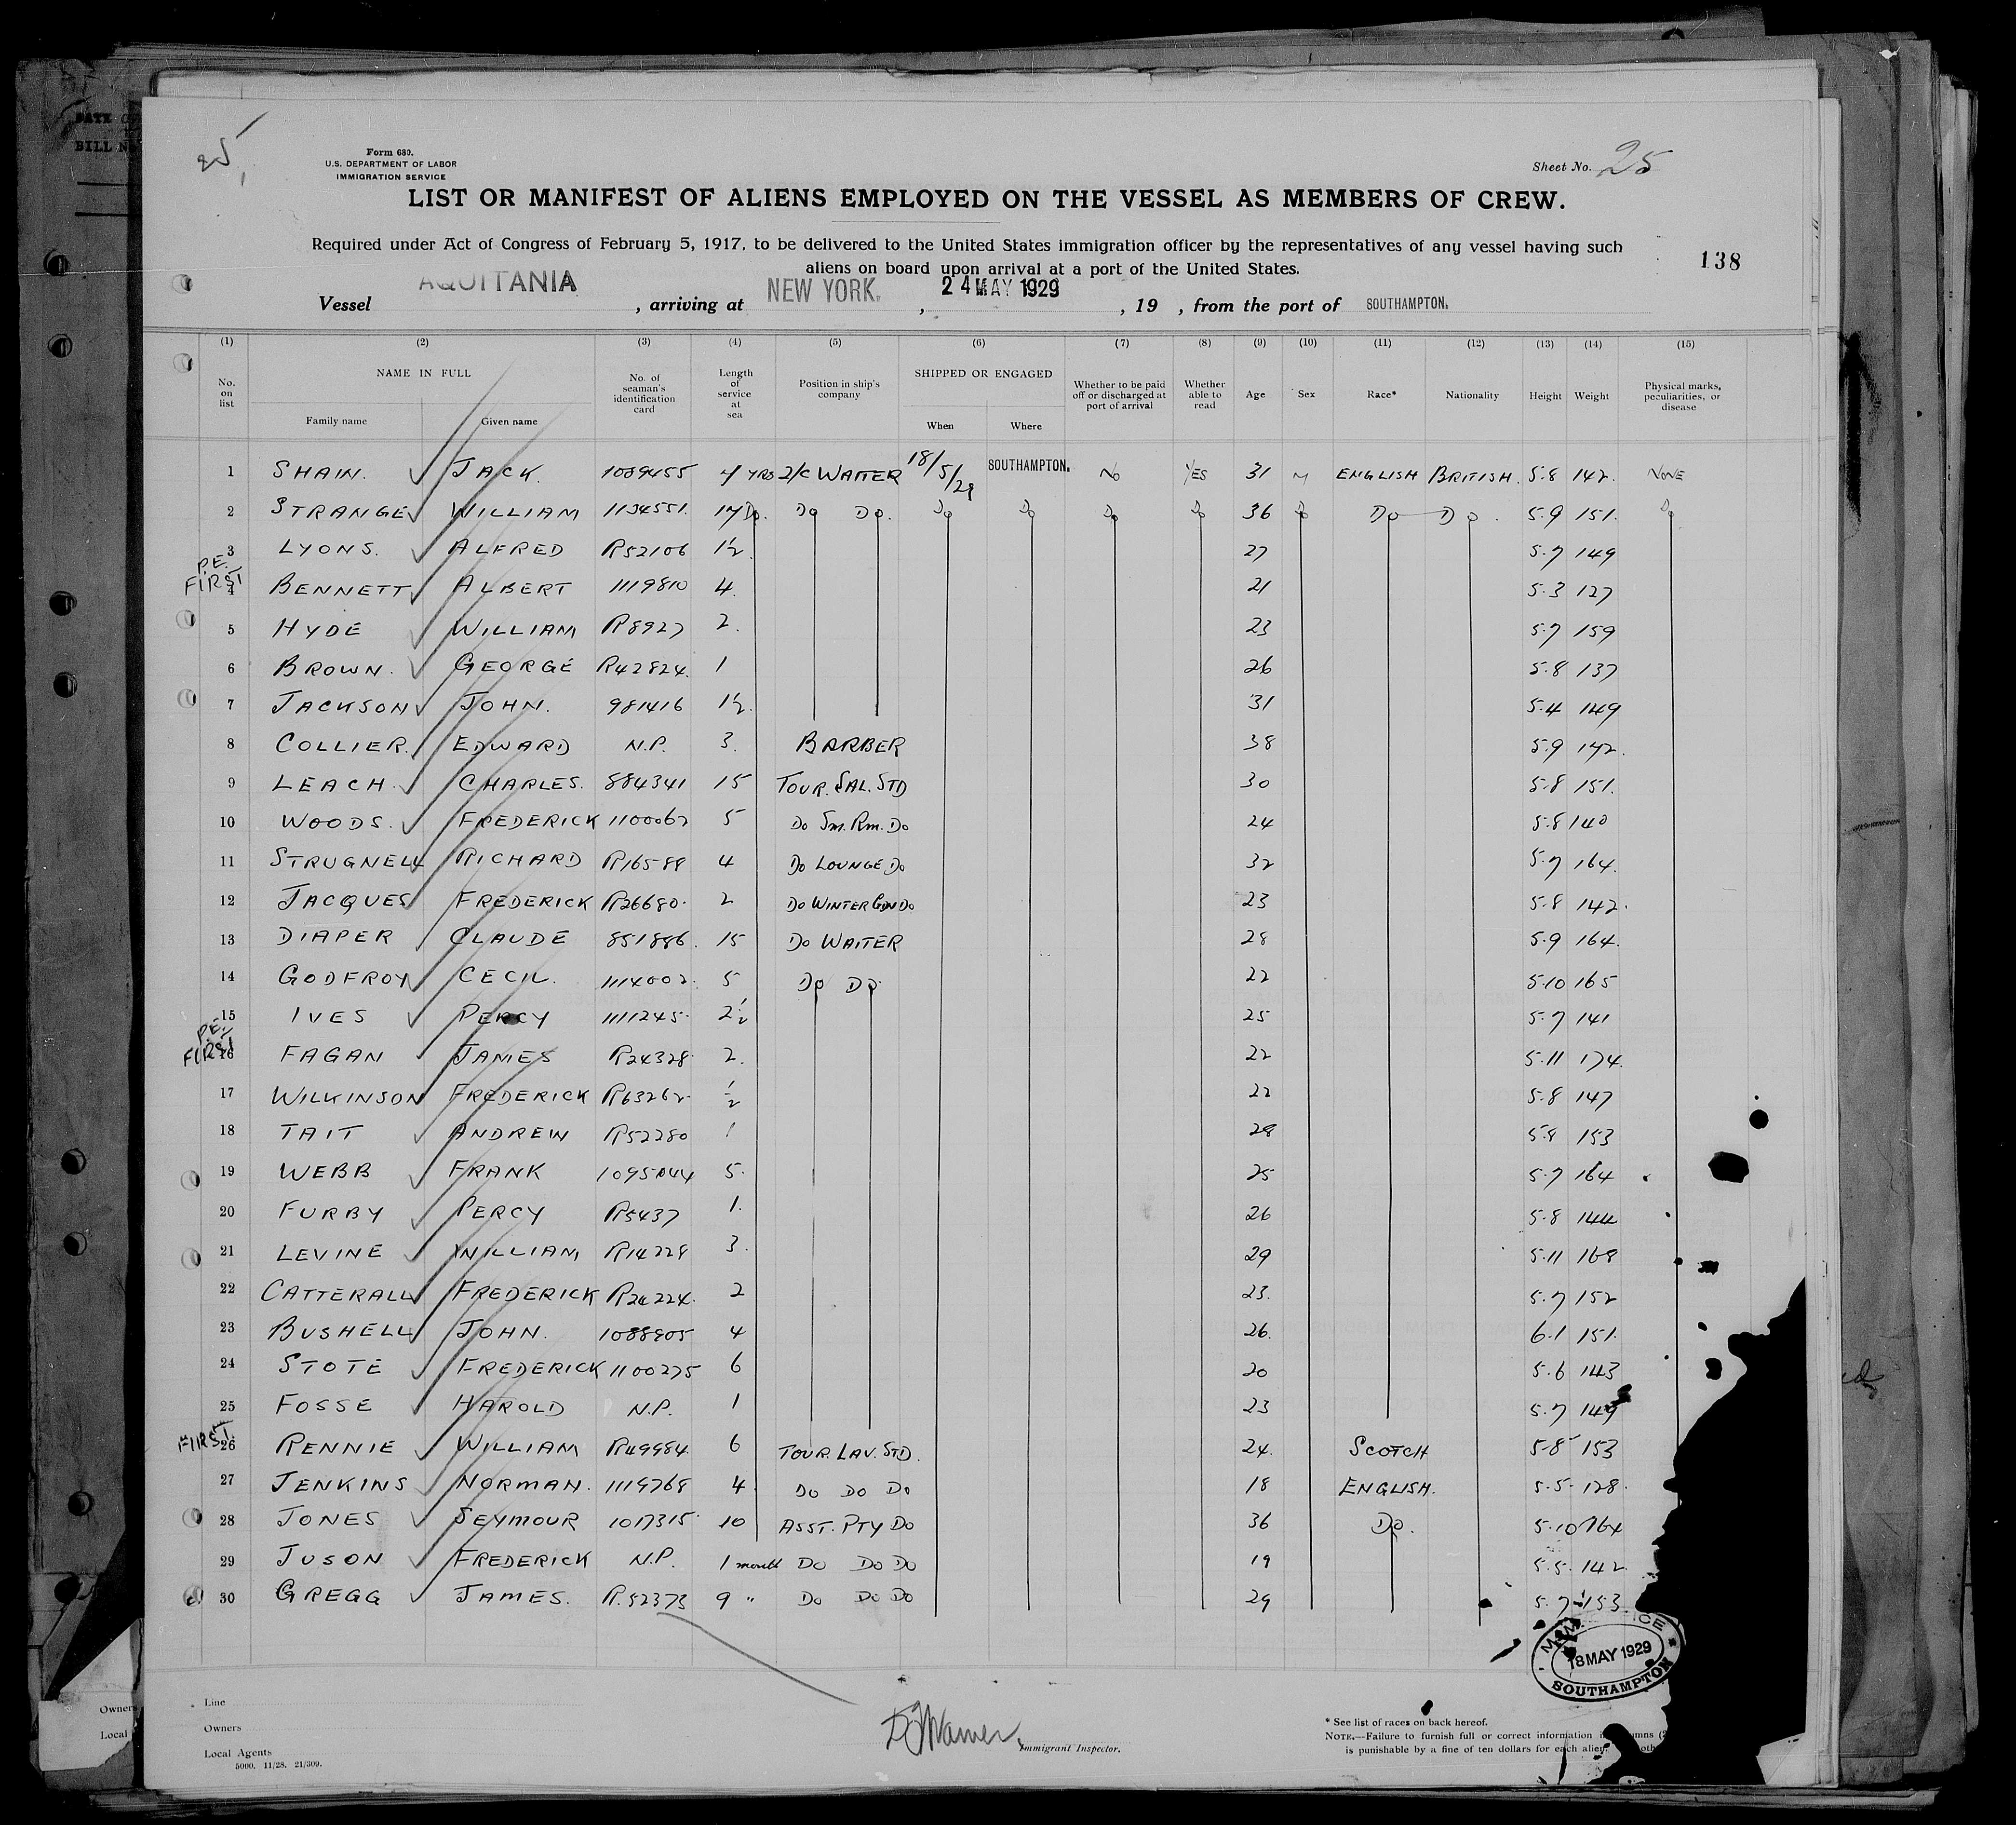 DATE
BILL
25
Form 680.
U.S. DEPARTMENT OF LABOR
IMMIGRATION SERVICE
Sheet No. 25
LIST OR MANIFEST OF ALIENS EMPLOYED ON THE VESSEL AS MEMBERS OF CREW.
Required under Act of Congress of February 5, 1917, to be delivered to the United States immigration officer by the representatives of any vessel having such
aliens on board upon arrival at a port of the United States.
138
Vessel AQUITANIA , arriving at NEW YORK. , 24 MAY 1929 , 19 , from the port of SOUTHAMPTON.
(1) (2) (3) (4) (5) (6) (7) (8) (9) (10) (11) (12) (13) (14) (15)
No. on list NAME IN FULL Family name Given name No. of seaman's identification card Length of service at sea Position in ship's company SHIPPED OR ENGAGED When Where Whether to be paid off or discharged at port of arrival Whether able to read Age Sex Race* Nationality Height Weight Physical marks, peculiarities, or disease
1 SHAIN. JACK. 1089455 4 YRS 2/C WAITER 18/5/29 SOUTHAMPTON. NO YES 31 M ENGLISH BRITISH. 5.8 142. NONE
2 STRANGE WILLIAM 1134551. 17 Do. Do Do. Do Do Do Do 36 Do Do Do. 5.9 151. Do
3 LYONS. ALFRED R52106 1½ 27 5.7 149
P.E. FIRST
4 BENNETT ALBERT 1119810 4. 21 5.3 127
5 HYDE WILLIAM R8927 2. 23 5.7 159
6 BROWN. GEORGE R42824. 1 26 5.8 137
7 JACKSON JOHN. 981416 1½. 31 5.4 149
8 COLLIER. EDWARD N.P. 3. BARBER 38 5.9 172.
9 LEACH. CHARLES. 884341 15 TOUR. SAL. STD 30 5.8 151.
10 WOODS. FREDERICK 1100062 5 Do Sm. Rm. Do 24 5.8 140
11 STRUGNELL RICHARD R16588 4 Do LOUNGE Do 32 5.7 164.
12 JACQUES FREDERICK R26680. 2 Do WINTER GDN Do 23 5.8 142.
13 DIAPER CLAUDE 851886. 15 Do WAITER 28 5.9 164.
14 GODFROY CECIL. 1114002. 5 Do Do. 22 5.10 165
15 IVES PERCY 1111245. 2½ 25 5.7 141
P.E. FIRST
16 FAGAN JAMES R24328. 2. 22 5.11 174.
17 WILKINSON FREDERICK R63262. ½ 22 5.8 147
18 TAIT ANDREW R52280 1 28 5.8 153
19 WEBB FRANK 1095044 5. 25 5.7 164
20 FURBY PERCY R5437 1. 26 5.8 144
21 LEVINE WILLIAM R14228 3. 29 5.11 168
22 CATTERALL FREDERICK 2 23. 5.7 152
23 BUSHELL JOHN. 1088905 4 26. 6.1 151.
24 STOTE FREDERICK 1100275 6 20 5.6 143
25 FOSSE HAROLD N.P. 1 23 5.7 149
FIRST.
26 RENNIE WILLIAM R49984. 6 TOUR. LAV. STD. 24. SCOTCH 5.8 153
27 JENKINS NORMAN. 1119768 4. Do Do Do 18 ENGLISH. 5.5 128.
28 JONES SEYMOUR 1017315. 10 ASST. PTY Do 36 Do. 5.10 164
29 JUSON FREDERICK N.P. 1 month Do Do Do 19 5.5. 142.
30 GREGG JAMES. R.52373 9 " Do Do Do 29 5.7 153
18 MAY 1929
SOUTHAMPTON
Line
Owners
Local Agents
5000. 11/28. 21/309.
Immigrant Inspector.
* See list of races on back hereof.
NOTE.—Failure to furnish full or correct information
is punishable by a fine of ten dollars for each alien.
Owners
Local